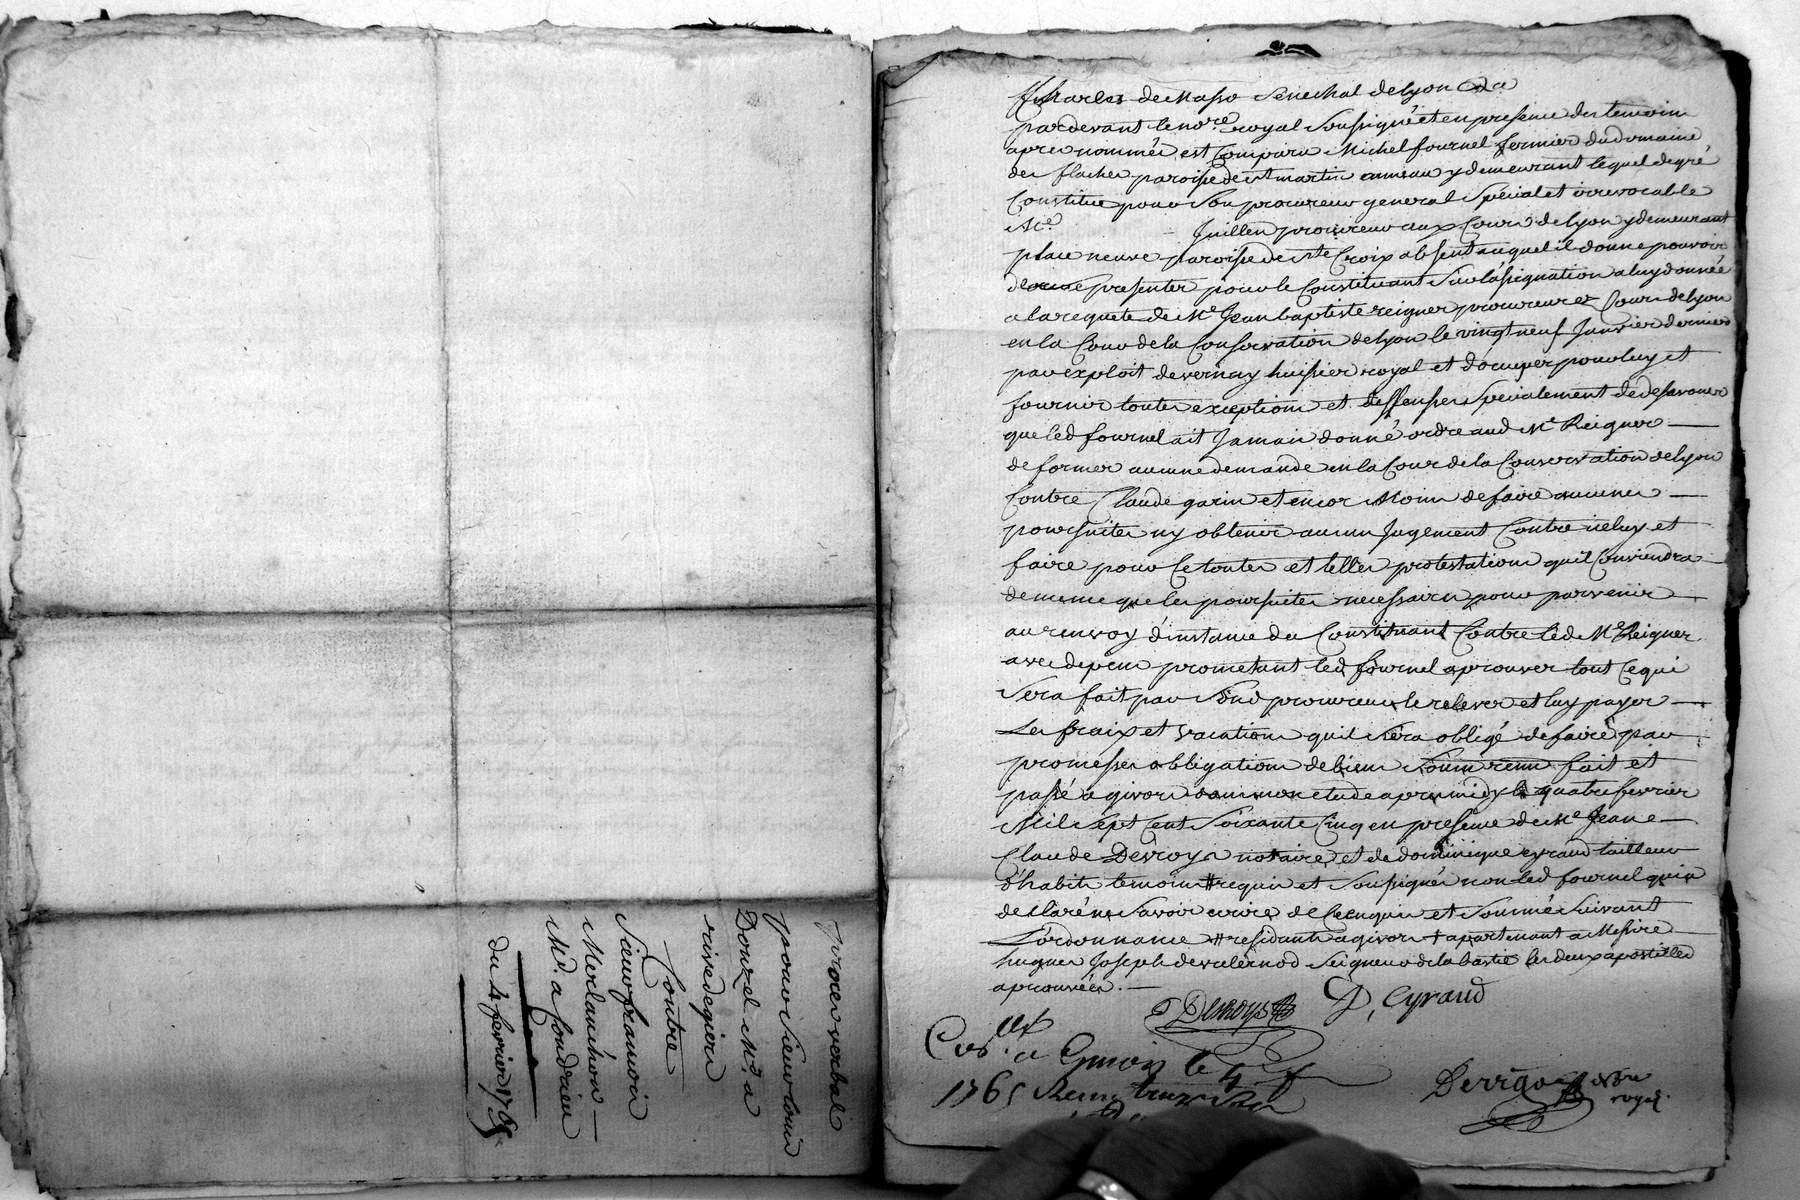 procès verbal
pour sieur Louis
Donzel Md. a
rivedegier
Contre
Sieur francois
Merlanchon
Md. a Condrieu
du 4 fevrier 1765
Charles de Masso Senechal de Lyon
pardevant le nore. royal soussigné et en presence des temoins
apres nommés est Comparu Michel fournel fermier du domaine
des flaches paroisse de st martin yderneurant lequel de gré
Constitue pour son procureur general special et irrevocable
Me. Juillien procureur aux Cours de lyon y demeurant
place neuve paroisse de ste Croix absent auquel il donne pouvoir
de se presenter pour le Constituant sur lassignation a luy donnée
a la requete de Me Jean baptiste reigner procureur es Cours de lyon
en la Cour de la Conservation de lyon le vingt neuf Janvier dernier
par exploit de vernay huissier royal et d'ocuper pour luy et
fournir toutes exceptions et deffenses specialement de desavouer
que led fournel ait Jamais donné ordre aud Me Reigner
de former aucune demande en la Cour de la Conservation de lyon
Contre Claude garin et encor Moins de faire aucunes
poursuites ny obtenir aucun Jugement Contre iceluy et
faire pour Ce toutes et telles protestations quil Conviendra
de meme que les poursuites necessaires pour parvenir
au renvoy d'instance du Constituant Contre led Me Reigner
avec depens prometant led fournel aprouver tout Ce qui
Sera fait par Sond procureur le relever et luy payer
Les fraix et vacations quil Sera obligé de faire par
promesses obligations de biens Soumn renn fait et
passé a givors dans mon etude apres midy le quatre fevrier
Mil Sept Cent Soixante Cinq en presence de Me Jean
Claude Devroys notaire et de dominique eyraud tailleur
d'habits temoins # requis et Soussignés non led fournel qui a
declaré ne Savoir ecrire de Ce enquis et Sommé Suivant
L'ordonnance # residants a givors + apartenant a Messire
hugues Joseph de valernod Seigneur de la bastie les deux apostilles
aprouvées.
Devroys D, Eyraud
Cos. a Givors le 4 f
1765 Receu treize sols
Dervgo nore
royal